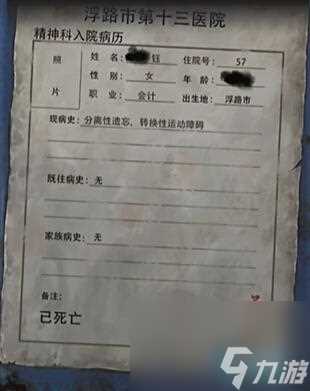 浮路市第十三医院
精神科入院病历
照片
姓名: 钰 住院号: 57
性别: 女 年龄:
职业: 会计 出生地: 浮路市
现病史: 分离性遗忘、转换性运动障碍
既往病史: 无
家族病史: 无
备注:
已死亡
九游